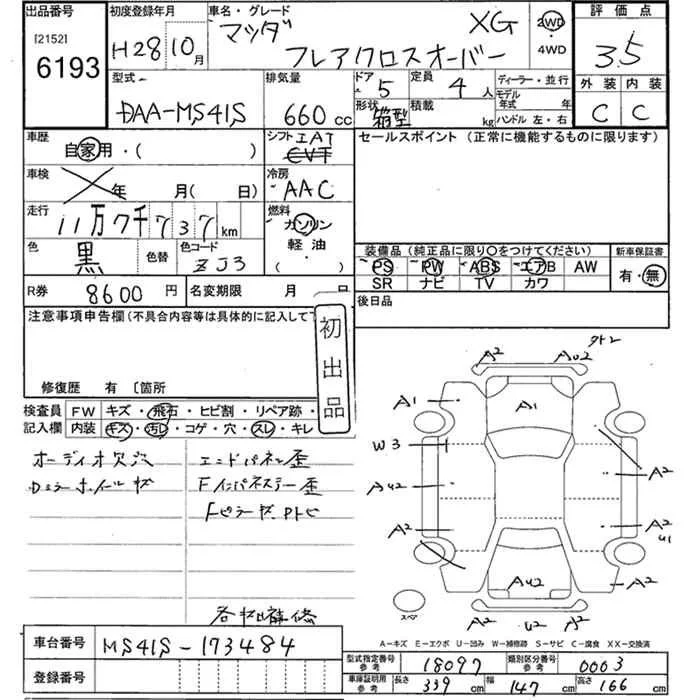 出品番号 初度登録年月 車名・グレード 評価点
[2152] H28 10月 マツダ XG 2WD・4WD 3.5
6193 フレアクロスオーバー
型式 排気量 ドア 定員 ディーラー・並行 外装 内装
DAA-MS41S 660cc 5 4人 モデル年式 年 C C
形状 積載 箱型 kg ハンドル 左・右
車歴 シフト IAT セールスポイント (正常に機能するものに限ります)
自家用・( ) CVT
車検 年 月(日) 冷房 AAC
走行 燃料
11万7千737km ガソリン
色 色替 色コード 軽油 装備品(純正品に限り○をつけてください) 新車保証書
黒 ZJ3 ( ) PS PW ABS エアB AW 有・無
SR ナビ TV カワ
R券 8600円 名変期限 月 日 後日品
注意事項申告欄(不具合内容等は具体的に記入して下
初出品
修復歴 有 〔箇所
検査員 FW キズ・飛石・ヒビ割・リペア跡・
記入欄 内装 キズ・汚レ・コゲ・穴・スレ・キレ
オーディオ欠穴 エンドパネル歪
Dミラーホイールキズ Fインパネステー歪
FピラーキズPトビ
各部補修
A2 AU2
A1 A1
W3 A2
AU2
A2 A2
U1
AU2 A2
A2 U2 A2
スペア
A-キズ E-エクボ U-凹み W-補修跡 S-サビ C-腐食 XX-交換済
車台番号 MS41S-173484
登録番号
型式指定番号 参考 18097 類別区分番号 参考 0003
車庫証明用 参考 長さ 339cm 幅 147cm 高さ 166cm